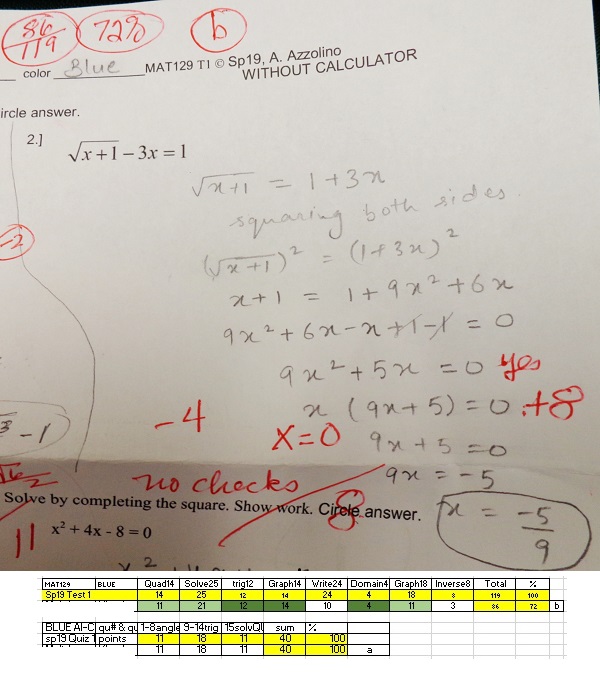 86/119 72% b
color Blue MAT129 T1 © Sp19, A. Azzolino
WITHOUT CALCULATOR
ircle answer.
2.] √x+1 – 3x = 1
√x+1 = 1+3x
squaring both sides.
-2
(√x+1)² = (1+3x)²
x+1 = 1+9x²+6x
9x²+6x-x+1-1 = 0
9x²+5x = 0 yes
x (9x+5) = 0 .+8
-4
x=0 9x+5 =0
- 1
9x = -5
no checks
Solve by completing the square. Show work. Circle answer.
8
x = -5/9
11 x² + 4x - 8 = 0
MAT129 BLUE Quad14 Solve25 trig12 Graph14 Write24 Domain4 Graph18 Inverse8 Total %
Sp19 Test 1 14 25 12 14 24 4 18 8 119 100
11 21 12 14 10 4 11 3 86 72 b
BLUE AI-C qu# & qu 1-8angle 9-14trig 15solvQu sum %
sp19 Quiz 1 points 11 18 11 40 100
11 18 11 40 100 a